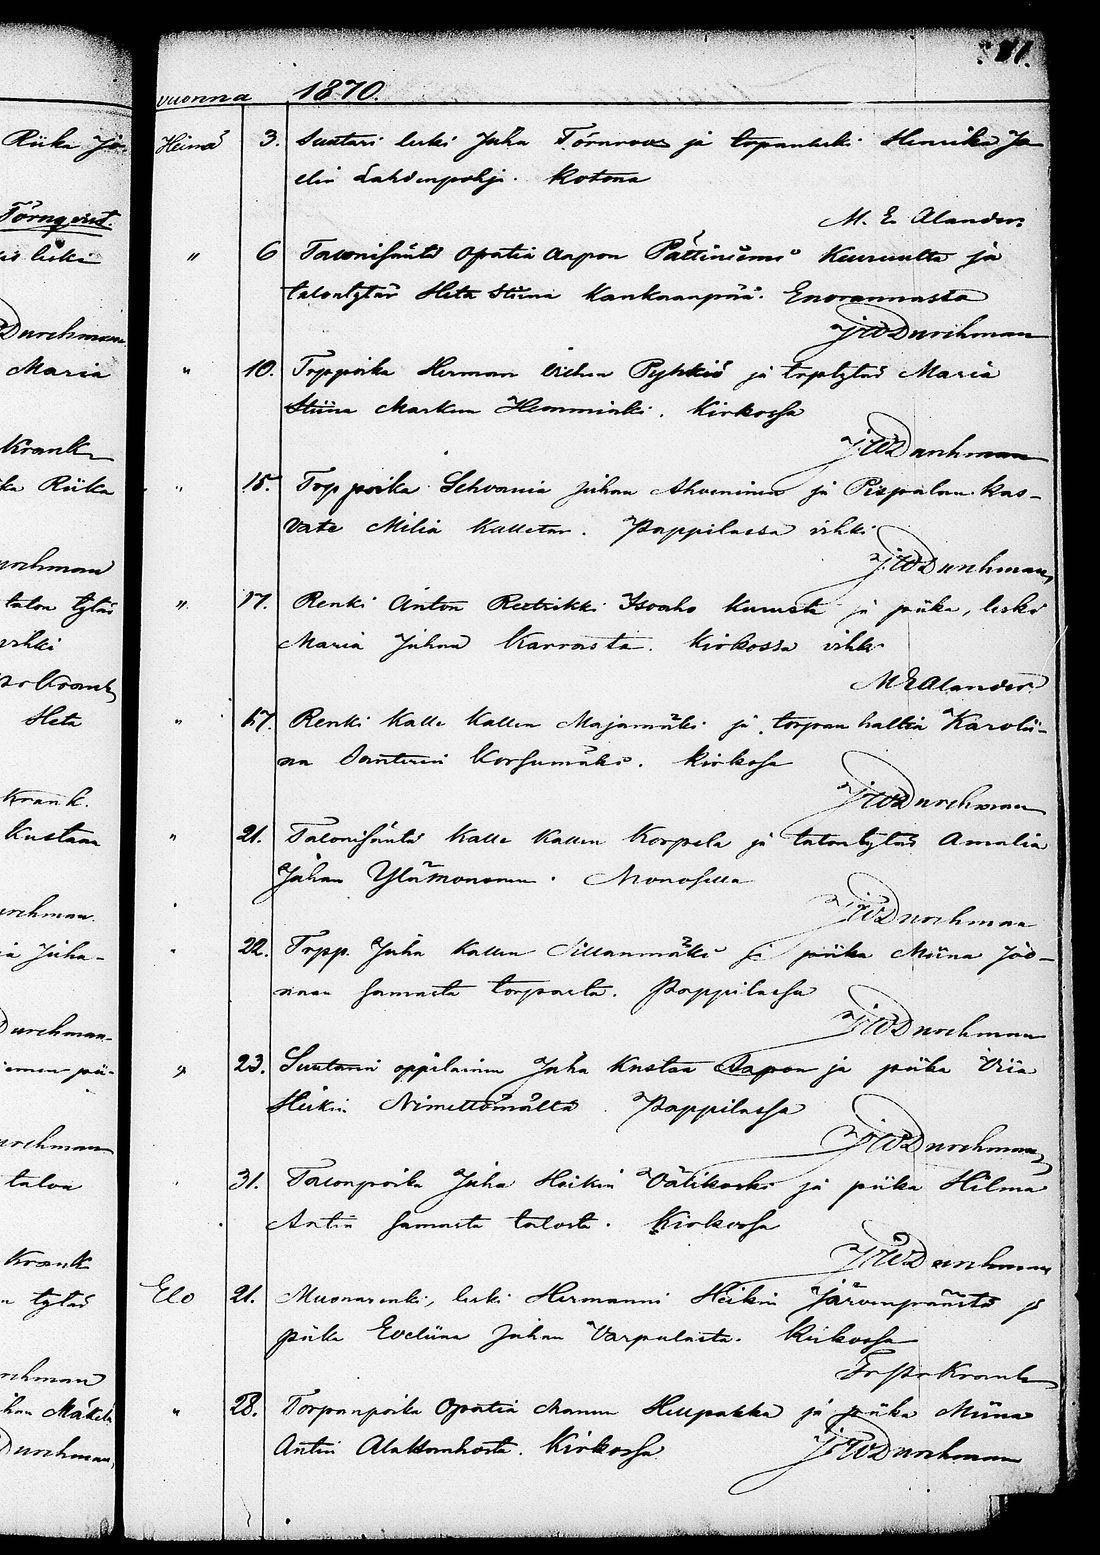 Riika Jo-
Törnqvist.
leski
Durchman
Maria
Krank
ka Riika
urchman
talon tytär
vihki
Krank
Heta
Krank.
Kustaan
urchman.
Juha-
Durchman
urchman
talon
Krank
tytär
rchman
Mäkelä
Durchman
vuonna 1870.
Heinä 3. Suutari leski Juha Törnroos ja torpanleski Henrika Ja
elin Lahdenpohja. Kotona
M. E. Alander.
" 6 Talonisäntä Opatia Aapon Pättiniemi Keuruulta ja
talontytär Heta Stiina Kankaanpää. Enorannasta
JWDurchman
" 10. Trppoika Herman Pyhkiö ja trptytär Maria
Stiina Markun Hemminki. Kirkossa
JWDurchman
" 15. Trppoika Juhan Ahveninen ja Pirpalan kas-
vate Milia Kalletar. Pappilassa vihki
JWDurchman
" 17. Renki Anton Isoaho ja piika, leski
Maria Juhan Karrasta. Kirkossa vihki
MEAlander.
" 17. Renki Kalle Kallen Majamäki ja torpan haltia Karolii-
na Santerin Korsumäki. Kirkossa
JWDurchman
" 21. Talonisäntä Kalle Kallen Korpela ja talontytär Amalia
Juhan Ylämononen. Monosella
JWDurchman
" 22. Trpp. Juha Kallen Sillanmäki ja piika Miina Joo-
naan samasta torpasta. Pappilassa
JWDurchman
" 23. Suutarin oppilainen Juha Kustaa Aapon ja piika Viia
Heikin Nimettömältä. Pappilassa
JWDurchman
31. Talonpoika Juha Heikin Välikoski ja piika Hilma
Antin samasta talosta. Kirkossa
JWDurchman
Elo 21. Muonarenki, leski Hermanni Heikin Järvenpäästä ja
piika Eveliina Juhan Varpulasta. Kirkossa
Krank
" 28. Torpanpoika Opatia Manun Heupakka ja piika Miina
Antin Kirkossa
JWDurchman